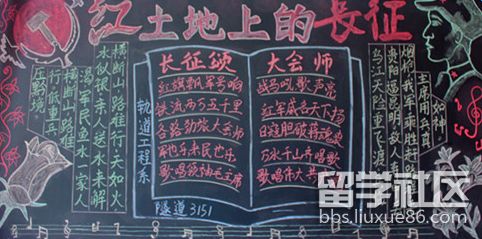 红土地上的长征
横断山路难行天如火
水似银亲人送水来解
渴军民鱼水一家人
横断山路难
行敌重兵
压黔境
轨道工程系
长征颂
红旗飘飘军号响
铁流两万五千里
各路劲旅大会师
军也乐来民也乐
歌唱领袖毛主席
大会师
战马吼歌声亮
红军威名天下扬
日寇胆颤蒋魂丧
万水千山齐唱歌
歌唱伟大共
调虎离山袭金沙
贵阳逼昆明敌人
乌江天险重飞渡
主席用兵真
如神
隧道3151
留学社区
bbs.liuxue86.com